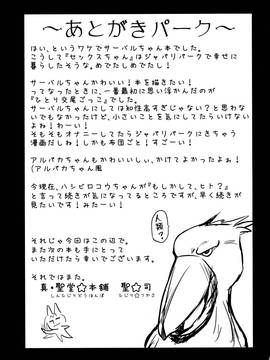 ～あとがきパーク～
はい、というワケでサーバルちゃん本でした。
こうして『セックスちゃん』はジャパリパークで幸せに
暮らしたそうな。めでたしめでたし！
サーバルちゃんかわいい！本を描きたい！
ってなったときに、一番最初に思い浮かんだのが
『ひとり交尾ごっこ』でした。
サーバルちゃんにしては知性高すぎじゃない？と思わな
いでもなかったけど、小さいことを気にしてたらいけない
よね！わーい！
そもそもオナニーしてたらジャパリパークにきちゃう
漫画だしね！しかも布団ごと！すごーい！
アルパカちゃんもかわいいしぃ、かけてよかったよぉ！
（アルパカちゃん風
今現在、ハシビロコウちゃんが『もしかして、ヒト？』
と言って続きが気になってるところですが、早く続きが
見たいです！みたーい！
人類？
それじゃ今回はこの辺で。
また次の本も手にとって
いただけたら幸いでございます。
それではまた。
真・聖堂☆本舗　聖☆司
しんひじりどうほんぽ　ひじり☆つかさ